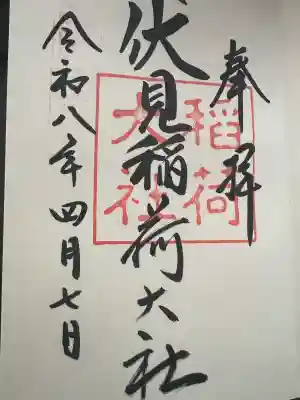 奉拜
伏見稲荷大社
稲荷
大社
令和八年四月七日